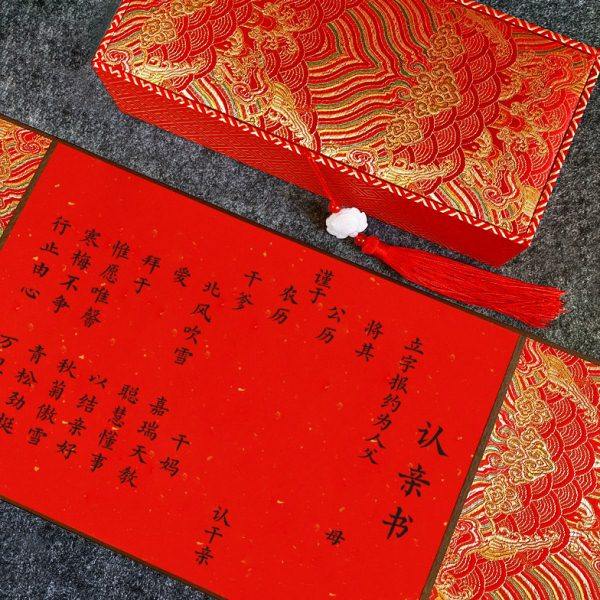 认亲书
立字报约为人父 母
将其
公历
谨于 农历 认干亲
干爹 干妈
北风吹雪 嘉瑞天教
爱 聪慧懂事
拜于 以结亲好
惟愿唯馨 秋菊傲雪
寒梅不争 青松劲挺
行止由心 万